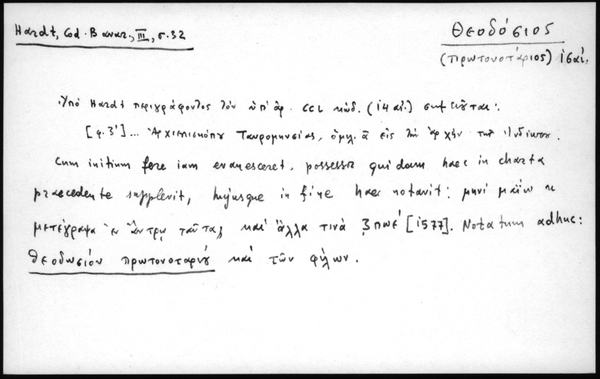 Hardt, Cod. Bavar., III, σ. 32
Θεοδόσιος
(πρωτονοτάριος) 16 αἰ.
Ὑπὸ Hardt περιγράφοντος τὸν ὑπ' ἀρ. CCL κώδ. (14 αἰ.) σημειοῦται:
[φ. 3'] ... Ἀρχιεπισκόπου Ταυρομησίας, ὁμιλ. α εἰς τὴν ἀρχὴν τῆς Ἰνδίκτου.
Cum initium fere iam evanesceret, possessor quidam haec in charta
praecedente supplevit, hujusque in fine haec notavit: μηνὶ μαίω
μετέγραψα ἐν ἄντρῳ ταῦτα καὶ ἄλλα τινὰ ζπωέ [1577]. Notatum adhuc:
θεοδωσίου πρωτονοταρίου καὶ τῶν φήλων.